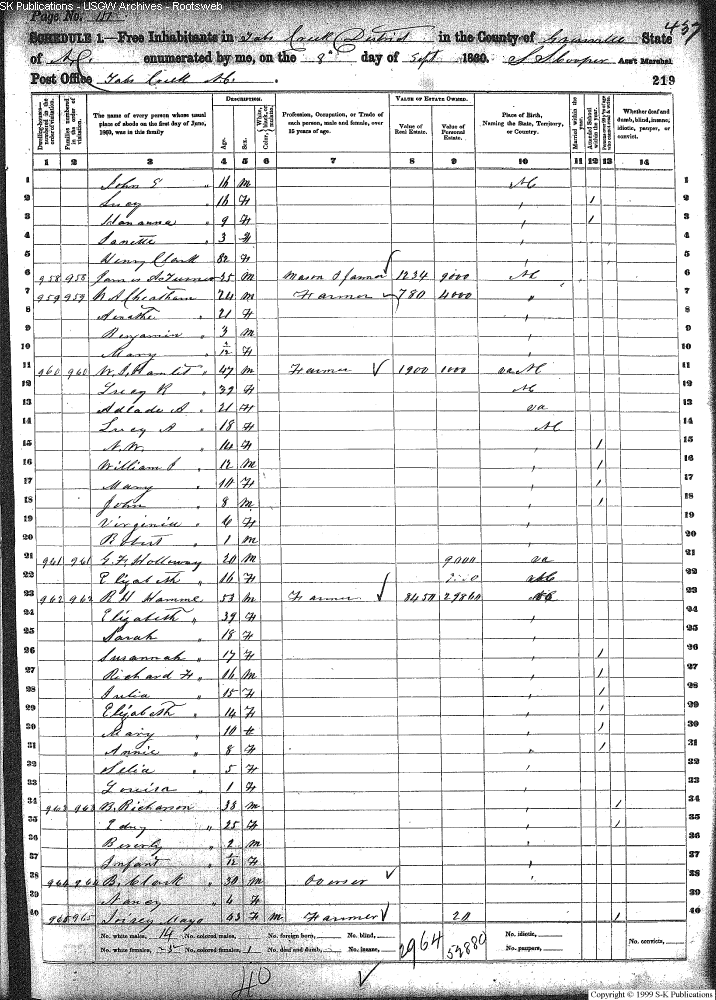 SK Publications - USGW Archives - Rootsweb
Page No. 111
457
SCHEDULE 1.—Free Inhabitants in Tabs Creek District in the County of Granville State
of N.C. enumerated by me, on the 8" day of Sept 1860. S S Cooper Ass't Marshal.
Post Office Tabs Creek N.C.
219
Dwelling-houses—numbered in the order of visitation.
Families numbered in the order of visitation.
The name of every person whose usual place of abode on the first day of June, 1860, was in this family
DESCRIPTION.
Age.
Sex.
Color,
Profession, Occupation, or Trade of each person, male and female, over 15 years of age.
VALUE OF ESTATE OWNED.
Value of Real Estate.
Value of Personal Estate.
Place of Birth, Naming the State, Territory, or Country.
Married within the year.
Attended School within the year.
Whether deaf and dumb, blind, insane, idiotic, pauper, or convict.
1 2 3 4 5 6 7 8 9 10 11 12 13 14
1 John E " 16 M NC 1
2 Lucy " 16 F , 1 2
3 " 9 F , 1 3
4 " 3 F , 4
5 Henry Clark 82 F , 5
6 958 958 James A Turner 25 M Mason & farmer 1234 9000 NC 6
7 959 959 Cheatham 24 M Farmer 780 4000 " 7
8 21 F , 8
9 Benjamin " 3 M , 9
10 Mary " /12 F , 10
11 960 960 47 M Farmer 1900 1000 va NC 11
12 Lucy R " 39 F NC 12
13 Adlade A " 21 F va 13
14 Lucy A " 18 F NC 14
15 N.W. " 14 F , 1 15
16 William " 12 M , 1 16
17 Mary " 10 F , 1 17
18 John " 8 M , 1 18
19 Virginia " 6 F , 19
20 Robert " 1 M , 20
21 961 961 G F Holloway 20 M 9000 va 21
22 Elizabeth " 16 F 22
23 962 962 R H Hamme 53 M Farmer 8450 29860 NC 23
24 Elizabeth " 39 F , 24
25 Sarah " 18 F , 25
26 Susannah " 17 F , 1 26
27 Richard F " 16 M , 1 27
28 Julia " 15 F , 1 28
29 Elizabeth " 14 F , 1 29
30 Mary " 10 F , 1 30
31 Annie " 8 F " 1 31
32 Selia " 5 F , 32
33 Louisa " 1 F , 33
34 963 963 B. Richarson 38 M , 1 34
35 Edny " 25 F , 1 35
36 Beverly " 2 M , 36
37 Infant " /12 F , 37
38 964 964 B. Clark " 30 M Overser , 38
39 Nancy " 4 F , 39
40 965 965 Mayo 43 F M Farmer 20 , 1 40
No. white males, 14 No. colored males, No. foreign born, No. blind, 2964 52880 No. idiotic, No. convicts,
No. white females, 25 No. colored females, 1 No. deaf and dumb, No. insane, No. paupers,
40
Copyright © 1999 S-K Publications